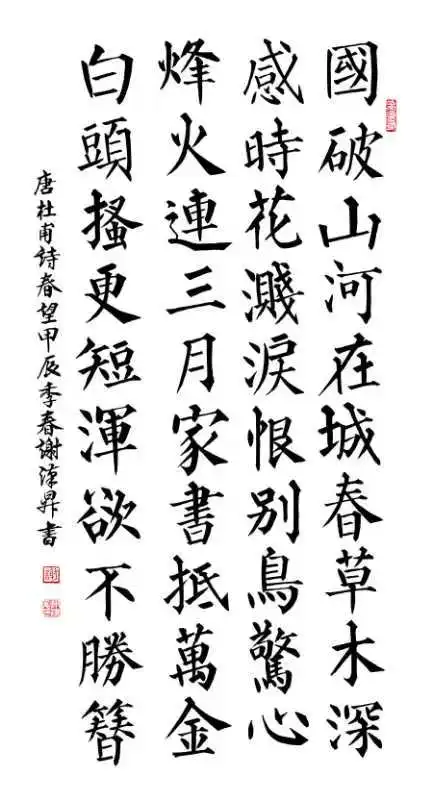 國破山河在城春草木深
感時花濺淚恨別鳥驚心
烽火連三月家書抵萬金
白頭搔更短渾欲不勝簪
唐杜甫詩春望甲辰季春謝淙昇書